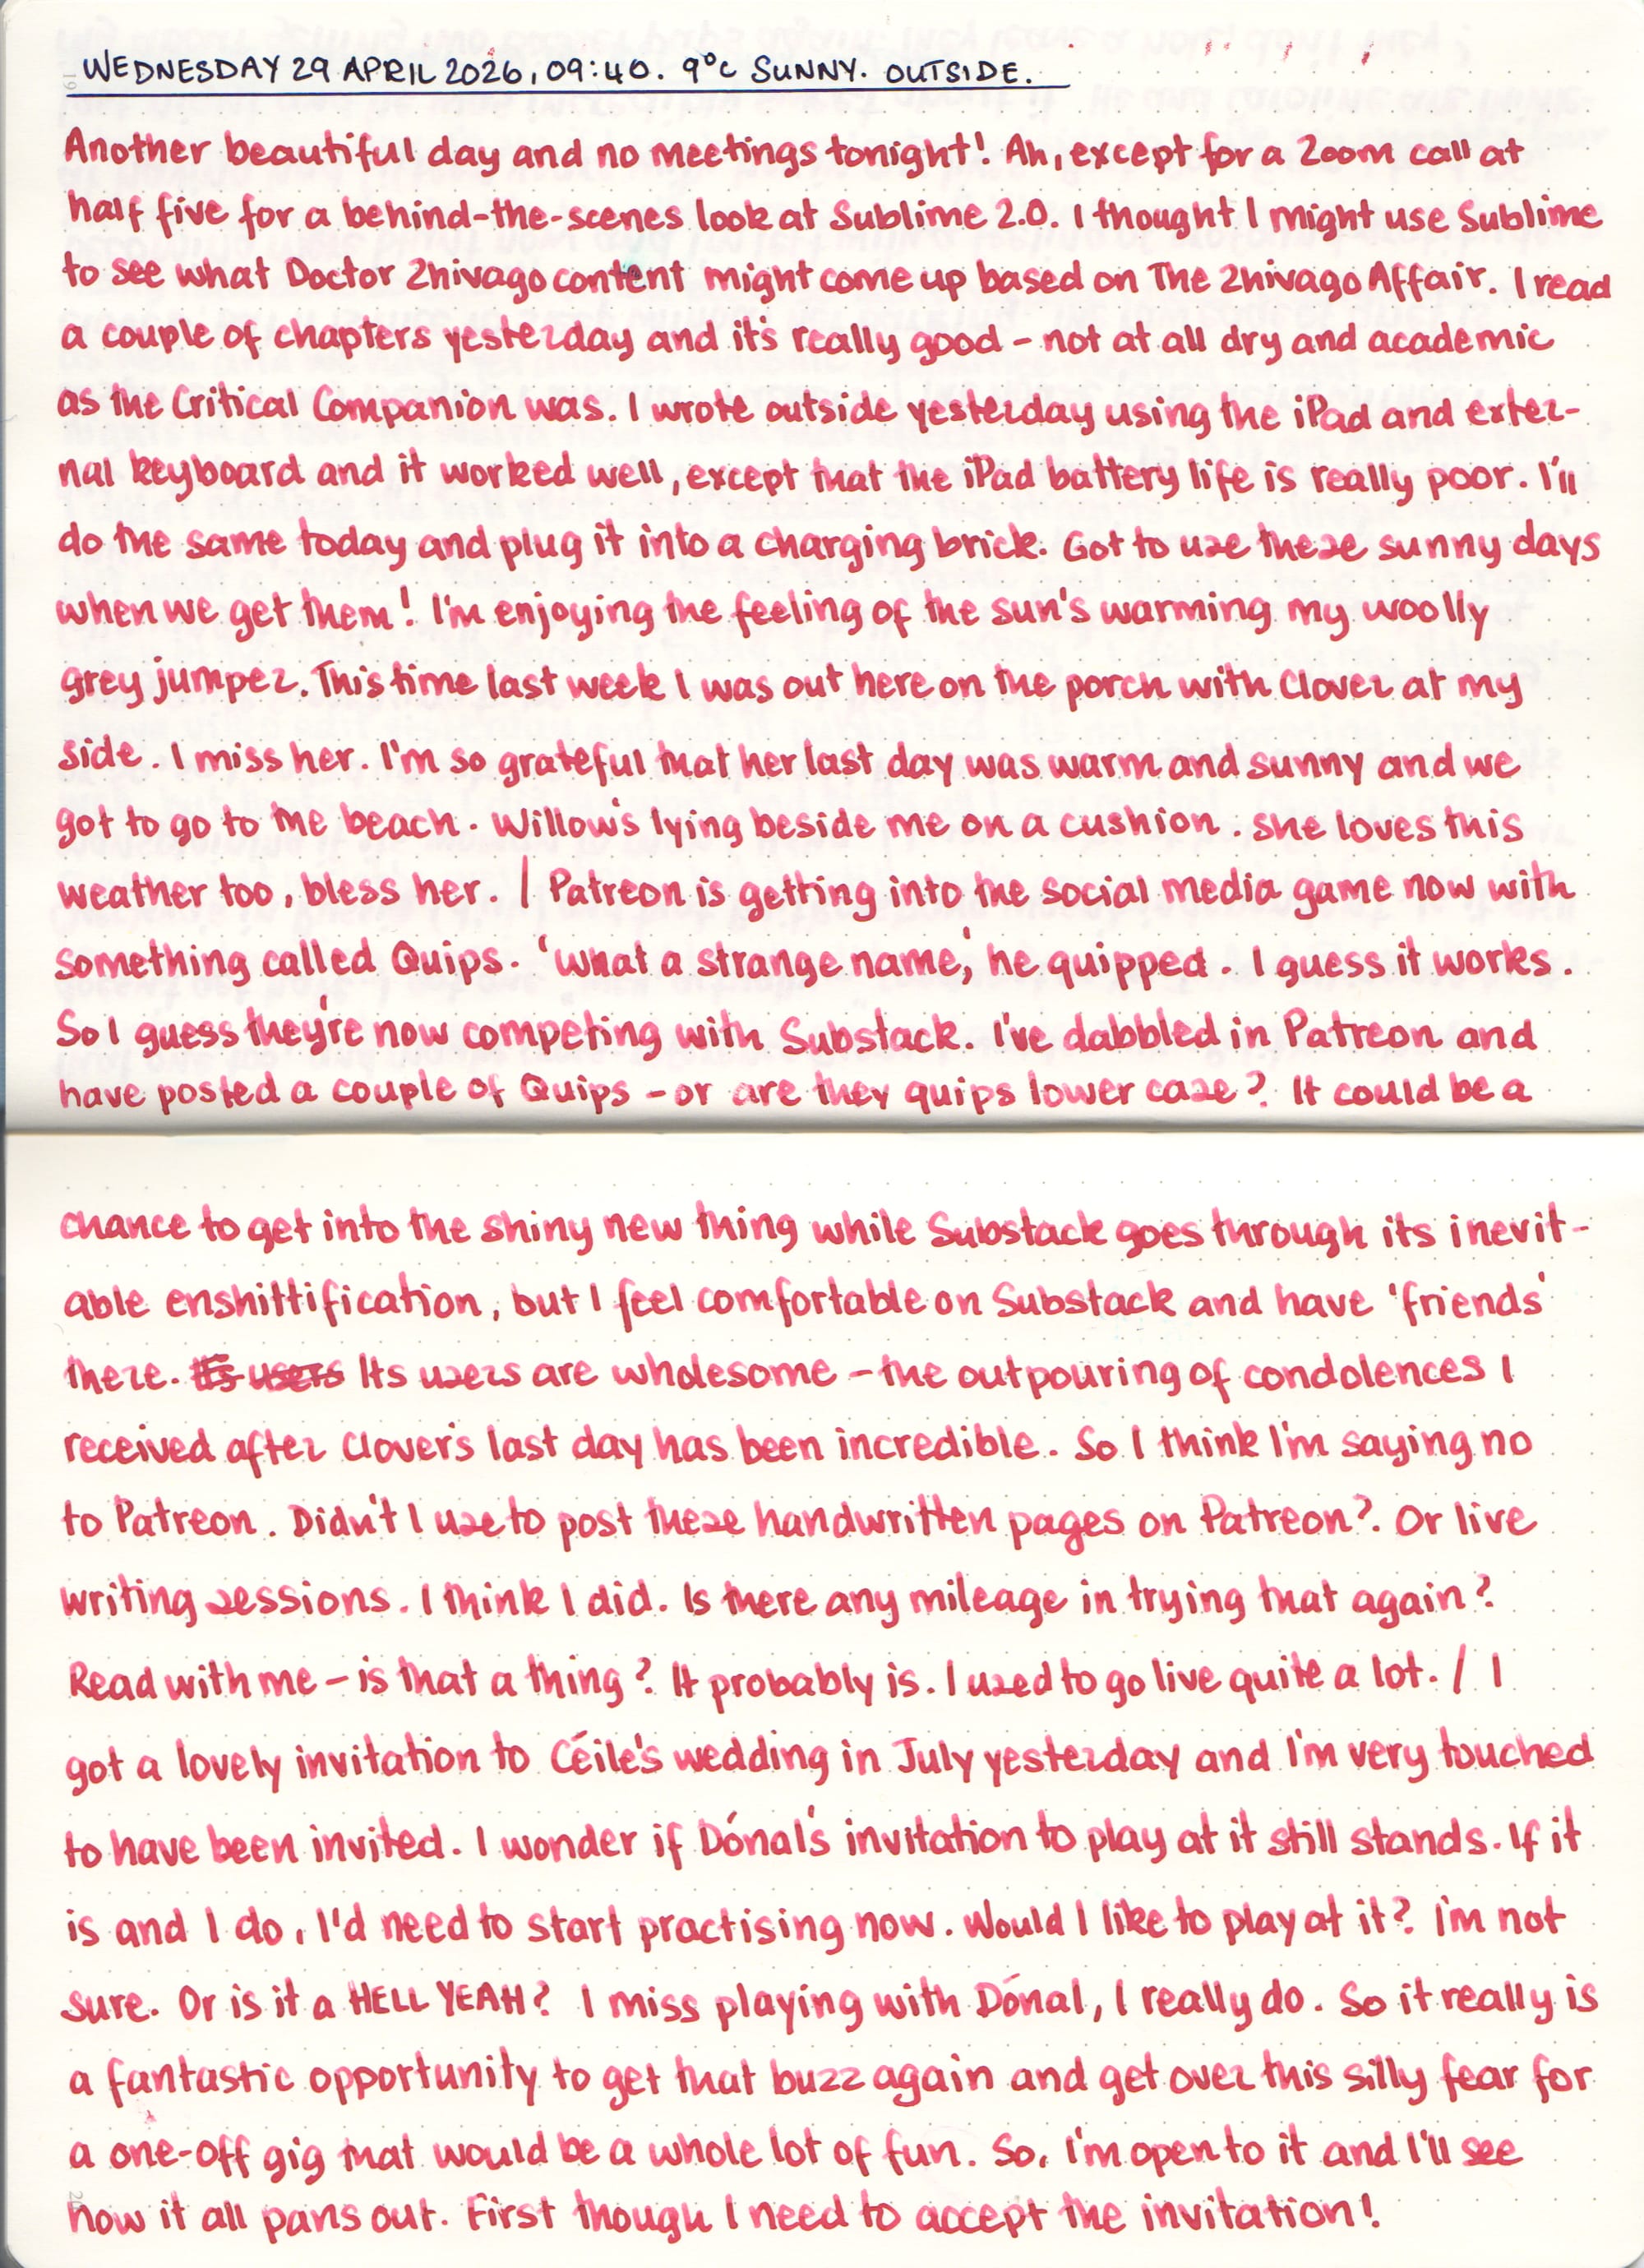 WEDNESDAY 29 APRIL 2026, 09:40. 9°C SUNNY. OUTSIDE.
Another beautiful day and no meetings tonight! Ah, except for a Zoom call at
half five for a behind-the-scenes look at Sublime 2.0. I thought I might use Sublime
to see what Doctor Zhivago content might come up based on The Zhivago Affair. I read
a couple of chapters yesterday and it's really good - not at all dry and academic
as the Critical Companion was. I wrote outside yesterday using the iPad and exter-
nal keyboard and it worked well, except that the iPad battery life is really poor. I'll
do the same today and plug it into a charging brick. Got to use these sunny days
when we get them! I'm enjoying the feeling of the sun's warming my woolly
grey jumper. This time last week I was out here on the porch with Clover at my
side. I miss her. I'm so grateful that her last day was warm and sunny and we
got to go to the beach. Willow's lying beside me on a cushion. She loves this
weather too, bless her. / Patreon is getting into the social media game now with
something called Quips. 'What a strange name,' he quipped. I guess it works.
So I guess they're now competing with Substack. I've dabbled in Patreon and
have posted a couple of Quips - or are they quips lower case? It could be a
19
chance to get into the shiny new thing while Substack goes through its inevit-
able enshittification, but I feel comfortable on Substack and have 'friends'
there. Its users Its users are wholesome - the outpouring of condolences I
received after Clover's last day has been incredible. So I think I'm saying no
to Patreon. Didn't I use to post these handwritten pages on Patreon?. Or live
writing sessions. I think I did. Is there any mileage in trying that again?
Read with me - is that a thing? It probably is. I used to go live quite a lot. / I
got a lovely invitation to Céile's wedding in July yesterday and I'm very touched
to have been invited. I wonder if Dónal's invitation to play at it still stands. If it
is and I do, I'd need to start practising now. Would I like to play at it? I'm not
sure. Or is it a HELL YEAH? I miss playing with Dónal, I really do. So it really is
a fantastic opportunity to get that buzz again and get over this silly fear for
a one-off gig that would be a whole lot of fun. So, I'm open to it and I'll see
how it all pans out. First though I need to accept the invitation!